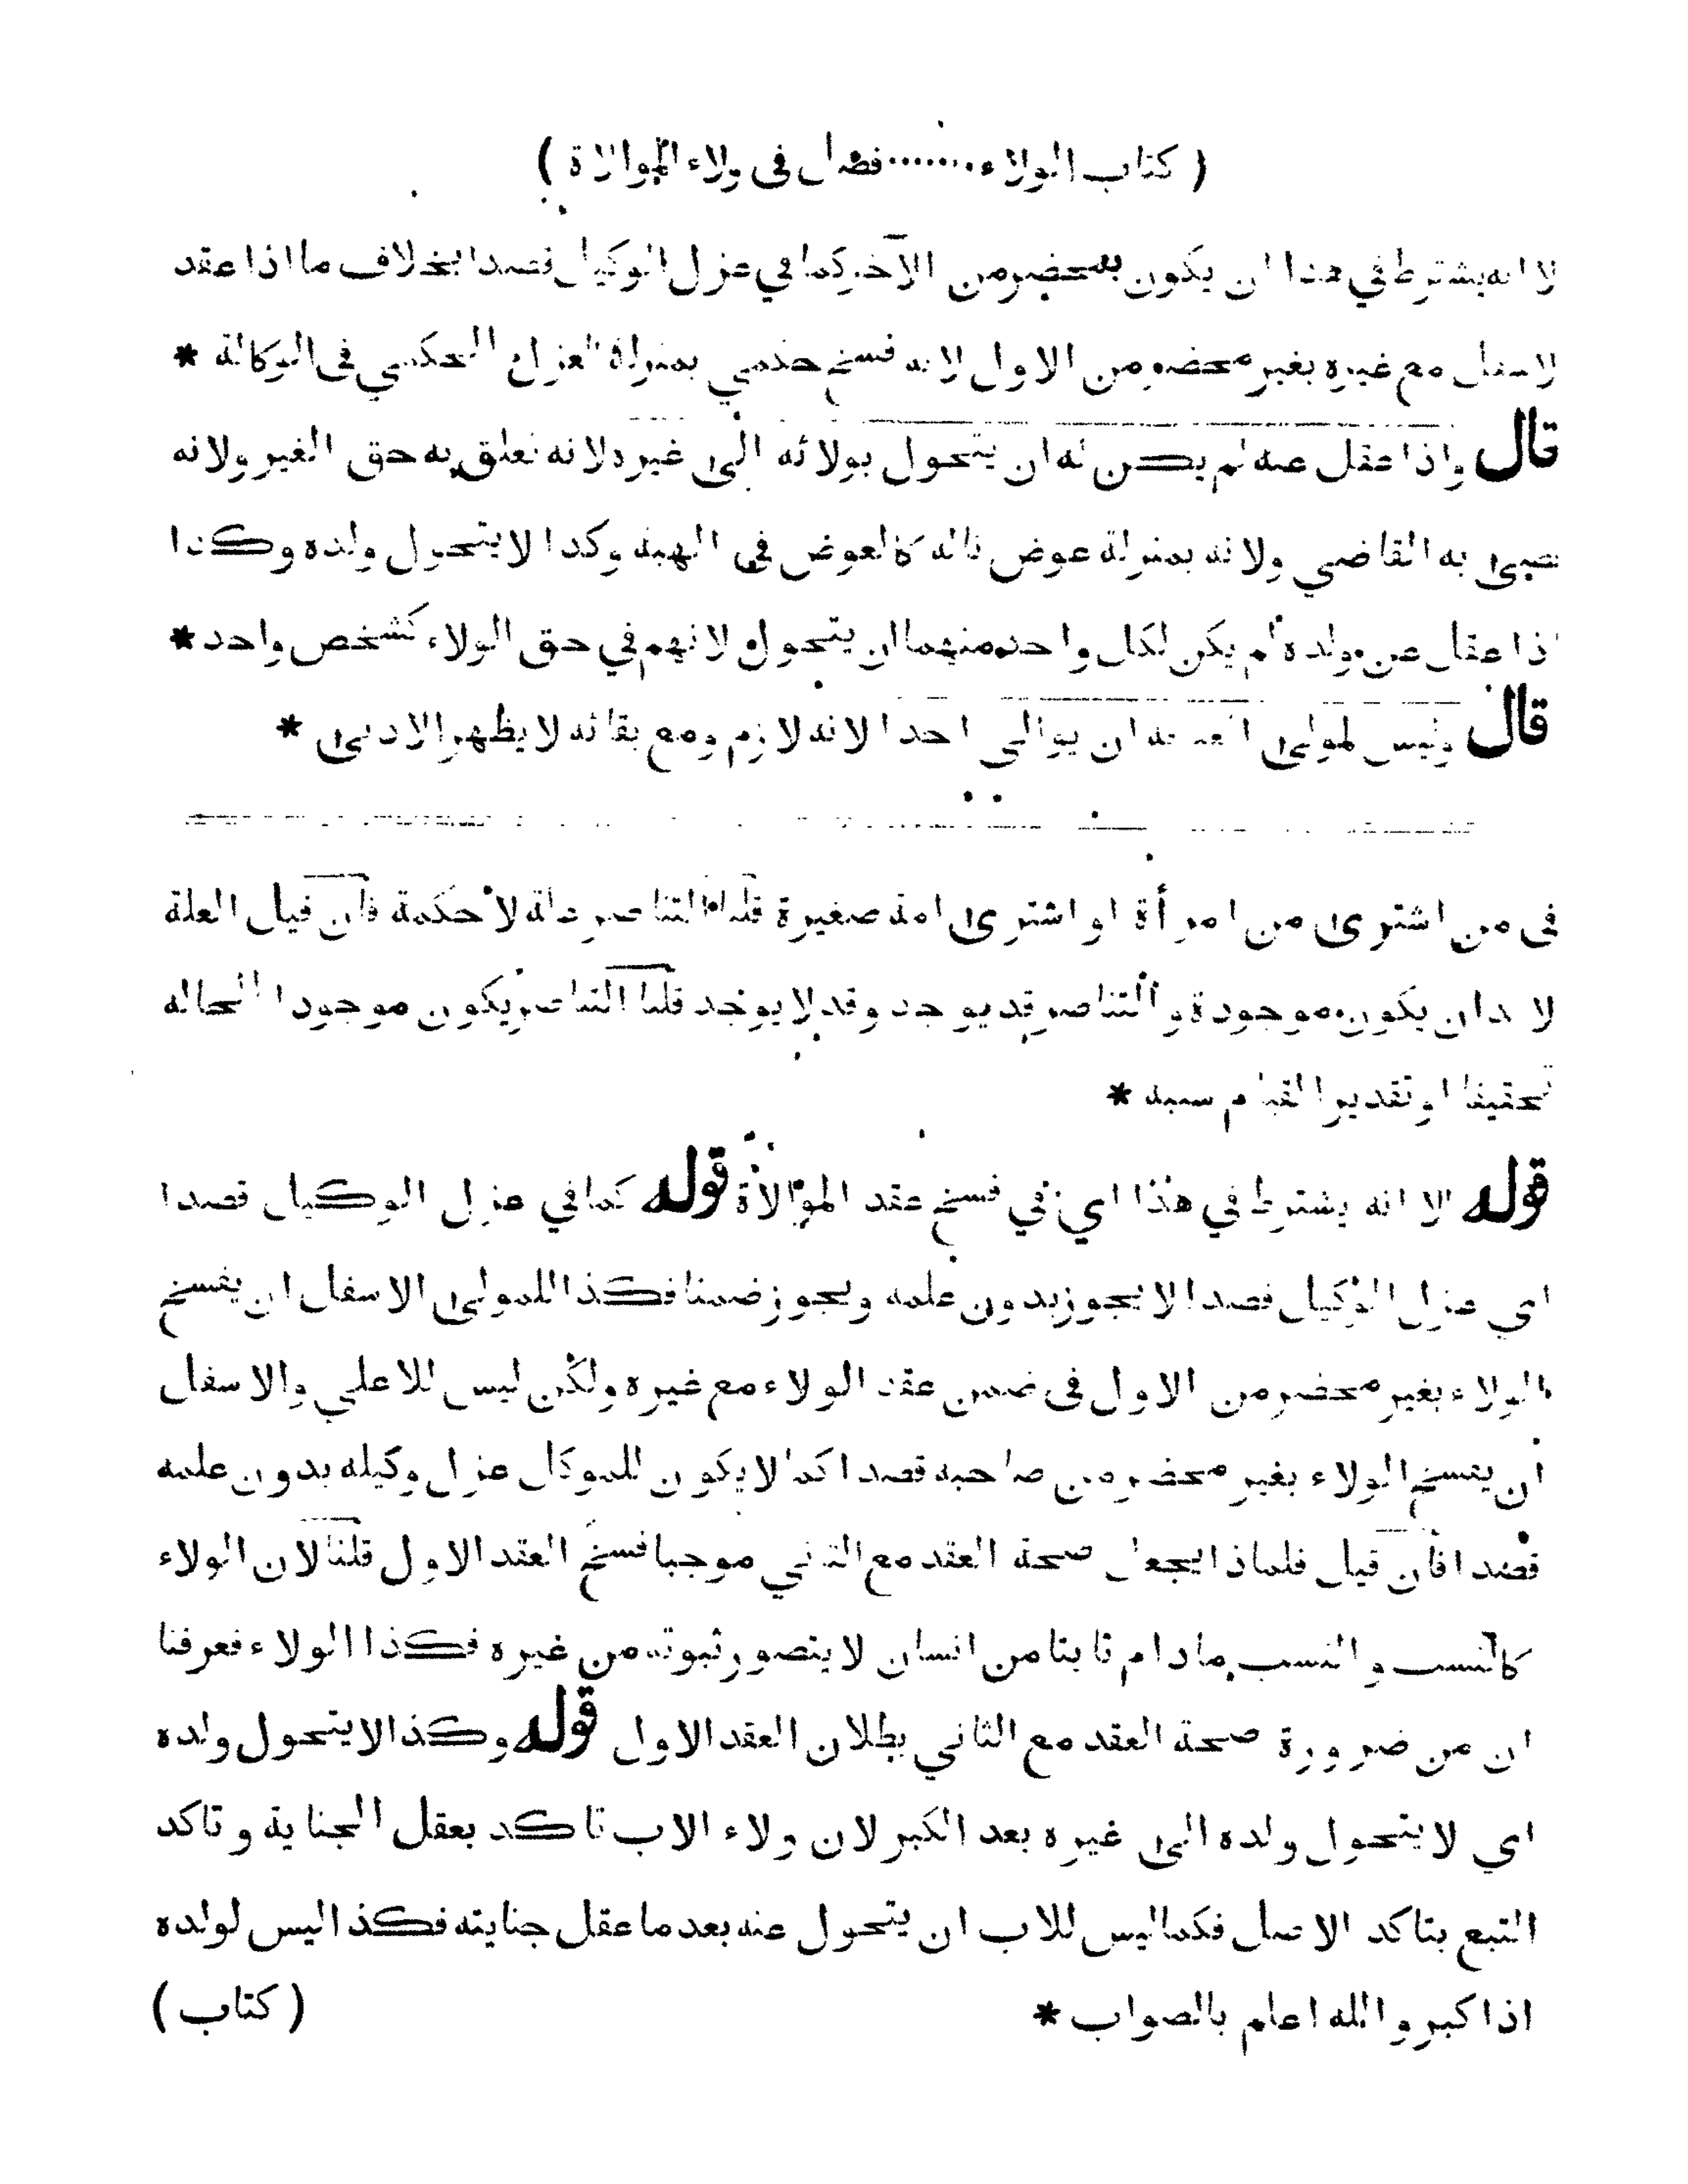 ( كتاب الولاء ....... فصل في ولاء الموالاة )
الا انه يشترط في هذا ان يكون بمحضر من الآخر كما في عزل الوكيل قصدا بخلاف ما اذا عقد
الاسفل مع غيره بغير محضر من الاول لانه فسخ حكمي بمنزلة العزل الحكمي في الوكالة *
قال واذا عقل عنه لم يكن له ان يتحول بولائه الى غيره لانه تعلق به حق الغير ولانه
قضى به القاضي ولانه بمنزلة عوض ناله كالعوض في الهبة وكذا لا يتحول ولده وكذا
اذا عقل عن ولده لم يكن لكل واحد منهما ان يتحول لانهم في حق الولاء كشخص واحد *
قال وليس لمولى العتاقة ان يوالي احدا لانه لازم ومع بقائه لا يظهر الادنى *
في من اشترى من امرأة او اشترى امة صغيرة قلنا التناصر علة لا حكمة فان قيل العلة
لا بد ان يكون موجودة والتناصر قد يوجد وقد لا يوجد قلنا التناصر يكون موجودا لا محالة
تحقيقا او تقديرا لقيام سببه *
قوله الا انه يشترط في هذا اي في فسخ عقد الموالاة قوله كما في عزل الوكيل قصدا
اي عزل الوكيل قصدا لا يجوز بدون علمه ويجوز ضمنا فكذا للمولى الاسفل ان يفسخ
الولاء بغير محضر من الاول في ضمن عقد الولاء مع غيره ولكن ليس للاعلي والاسفل
ان يفسخ الولاء بغير محضر من صاحبه قصدا كما لا يكون للموكل عزل وكيله بدون علمه
قصدا فان قيل فلماذا يجعل صحة العقد مع الثاني موجبا فسخ العقد الاول قلنا لان الولاء
كالنسب والنسب ما دام ثابتا من انسان لا يتصور ثبوته من غيره فكذا الولاء فعرفنا
ان من ضرورة صحة العقد مع الثاني بطلان العقد الاول قوله وكذا لا يتحول ولده
اي لا يتحول ولده الى غيره بعد الكبر لان ولاء الاب تاكد بعقل الجناية وتاكد
التبع بتاكد الاصل فكما ليس للاب ان يتحول عنه بعد ما عقل جنايته فكذا ليس لولده
اذا كبر والله اعلم بالصواب *
( كتاب )